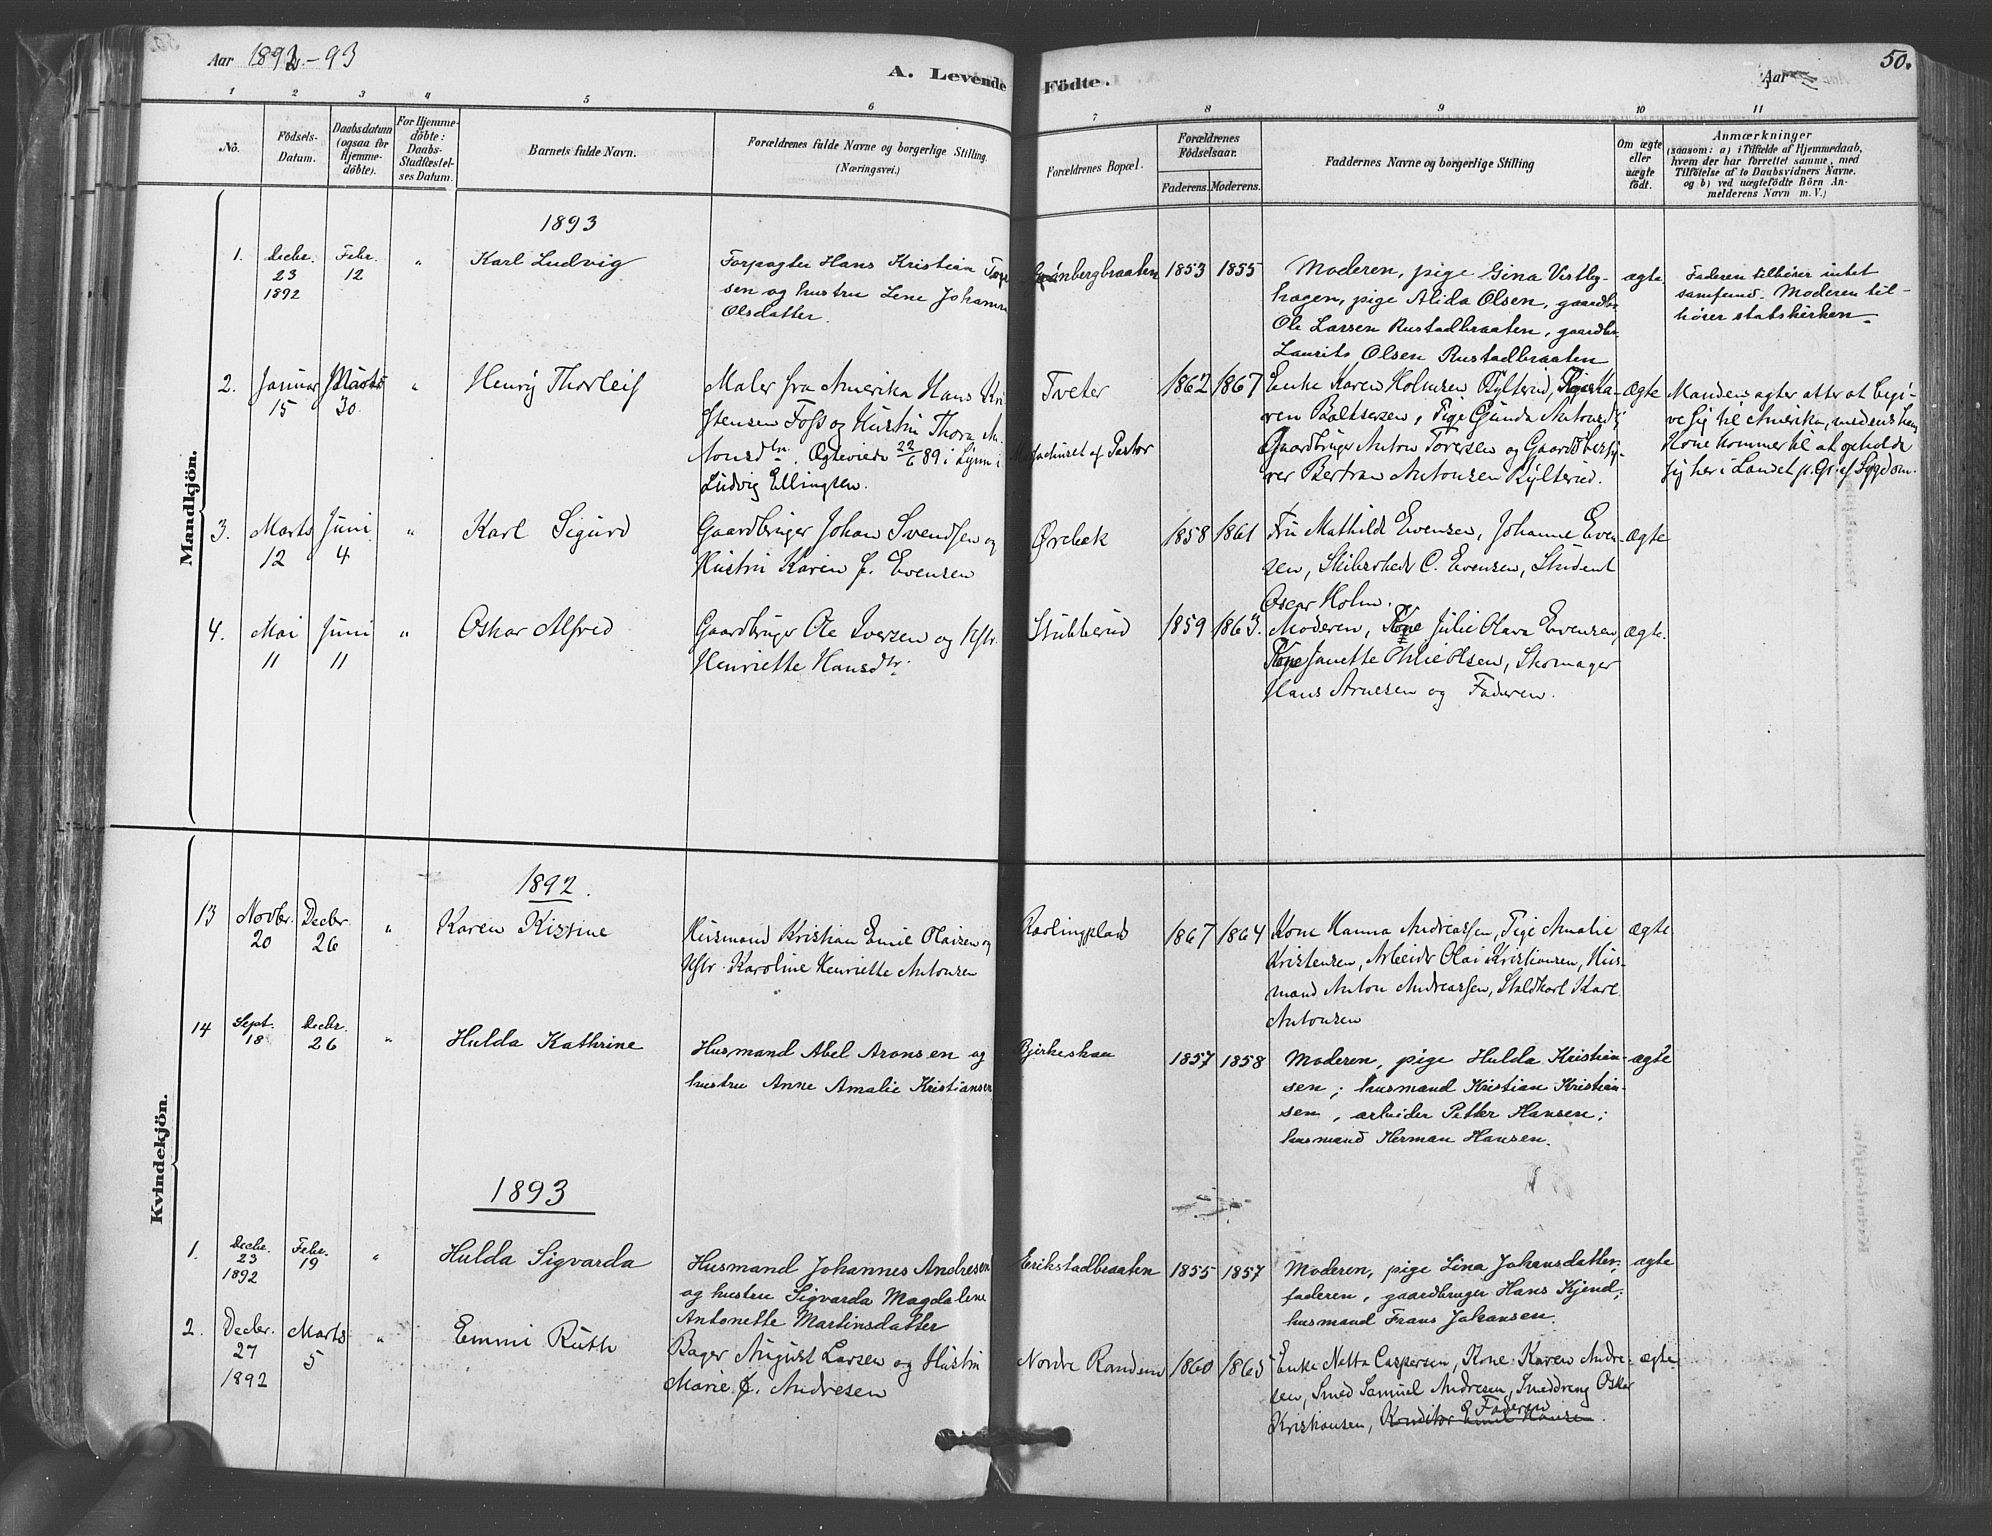 Aar 1892-93
A. Levende Födte.
Aar
50.
1 2 3 4 5 6 7 8 9 10 11
No.
Födsels-Datum.
Daabsdatum (ogsaa for Hjemme-döbte).
For Hjemme-döbte: Daabs-Stadfæstel-ses Datum.
Barnets fulde Navn.
Forældrenes fulde Navne og borgerlige Stilling. (Næringsvei.)
Forældrenes Bopæl.
Forældrenes Födselsaar.
Faderens. Moderens.
Faddernes Navne og borgerlige Stilling
Om ægte eller uægte födt.
Anmærkninger
(saasom: a) i Tilfælde af Hjemmedaab,
hvem der har forrettet samme, med
Tilföielse af to Daabsvidners Navne.
og b) ved uægtefödte Börn An-
melderens Navn m. V.)
Mandkjön.
1893
1. Decbr. 23 1892
Febr. 12
"
Karl Ludvig
Forpagter Hans Kristian
sen og hustru Lene Johanne
Olsdatter.
Grønbergbraaten
1853 1855
Moderen, pige Gina Vestby-
hagen, pige Alida Olsen, gaardbr.
Ole Larsen Rustadbraaten, gaardbr.
Laurits Olsen Rustadbraaten
ægte
Faderen tilhører intet
samfund. Moderen til-
hører statskirken.
2. Januar 15
Marts 30.
"
Henry Thorleif
Maler fra Amerika Hans Kri-
stensen Foss og Hustru Thora An-
tonsdtr. Ægteviede 22/6 89 i Lynn i
Massachuset af Pastor
Ludvig Ellingsen.
Tveter
1862 1867
Enke Karen Holmsen Rylterud, Pige Ka-
ren Baltsersen, Pige Gunda Antonsd.,
Gaardbruger Anton Toresen og Gaardbesty-
rer Bertran Antonsen Rylterud.
ægte
Manden agter atter at begi-
ve sig til Amerika, medens han
Kone kommer til at opholde
sig her i Landet p. Gr. af Sygdom.
3. Marts 12
Juni 4
"
Karl Sigurd
Gaardbruger Johan Svendsen og
Hustru Karen J. Evensen
Ørebæk
1858 1861
Fru Mathilde Evensen, Johanne Even-
sen, Skibsrheder C. Evensen, Student
Oscar Holm.
ægte
4. Mai 11
Juni 11
"
Oskar Alfred
Gaardbruger Ole Iversen og Hstr.
Henriette Hansdtr.
Stubberud
1859 1863.
Moderen, Kone Julie Olava Evensen,
Pige Janette Othilie Olsen, Skomager
Hans Arnesen og Faderen.
ægte.
Kvindekjön.
1892.
13 Novbr. 20
Decbr. 26
"
Karen Kistine
Husmand Kristian Emil Olaisen og
Hstr. Karoline Henriette Antonsen
Karlingplads
1867 1864
Kone Hanna Andreassen, Pige Amalie
Kristensen, Arbeider Olai Kristiansen, Hus-
mand Anton Andreassen, Staldkarl Karl
Antonsen
ægte
14 Sept. 18
Decbr. 26
"
Hulda Kathrine
Husmand Abel Aronsen og
hustru Anne Amalie Kristiansen
Bjerkeskau
1857 1858
Moderen, pige Hulda Kristian-
sen; husmand Kristian Kristian-
sen, arbeider Petter Hansen;
husmand Herman Hansen.
ægte
1893
1. Decbr. 23 1892
Febr. 19
"
Hulda Sigvarda
Husmand Johannes Andresen
og hustru Sigvarda Magdalene
Antonette Martinsdatter
Erikstadbraaten
1855 1857
Moderen, pige Lina Johansdatter,
faderen, gaardbruger Hans Kjend,
husmand Frans Johansen.
ægte
2. Decbr. 27 1892
Marts 5
"
Emmi Ruth
Bager August Larsen og Hustru
Marie J. Andresen
Nordre Randem
1860 1865
Enke Netta Caspersen, Kone Karen Andre-
sen, Smed Samuel Andresen, Smeddreng Oskar
Kristiansen, Konditor Emil Hansen. Faderen
ægte